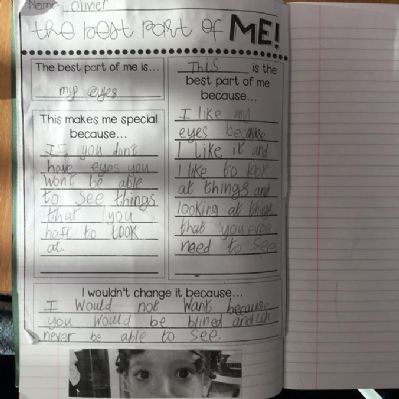 Name Oliver
the best part of ME!
The best part of me is...
my eyes
This makes me special
because...
If you don't
have eyes you
wont be able
to see things
that you
haft to look
at.
This is the
best part of me
because...
I like my
eyes because
I like it and
I like to look
at things and
looking at things
that you even
need to see
I wouldn't change it because...
I would not want because
you would be blined and
never be able to see.